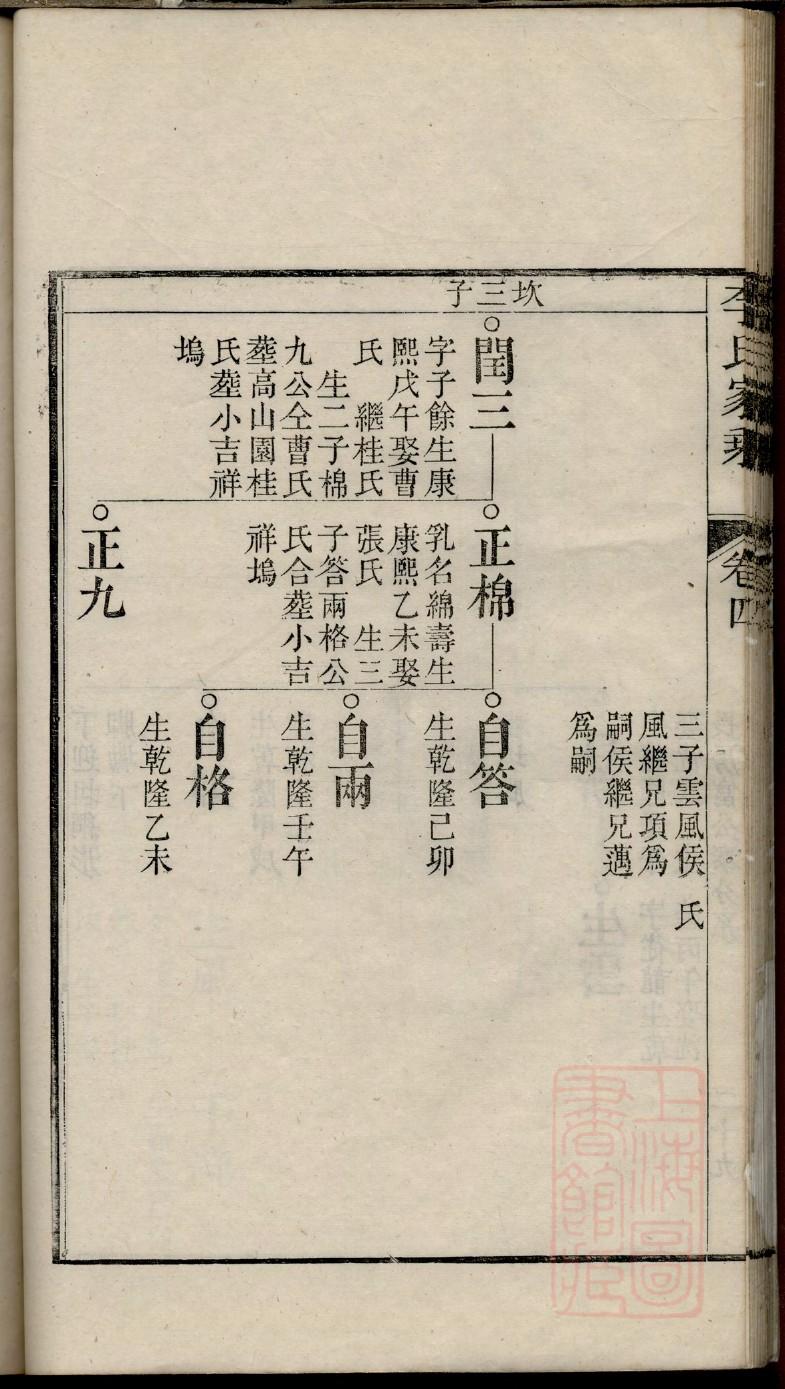 李氏家乘
卷四
坎三子
三子雲風侯
風繼兄項為
嗣侯繼兄邁
為嗣
氏
閏三
字子餘生康
熙戊午娶曹
氏 繼桂氏
生二子棉
九公仝曹氏
塟高山園桂
氏塟小吉祥
塢
正棉
乳名綿壽生
康熙乙未娶
張氏 生三
子答兩格公
氏合塟小吉
祥塢
正九
自答
生乾隆己卯
自兩
生乾隆壬午
自格
生乾隆乙未
上海圖
書館藏